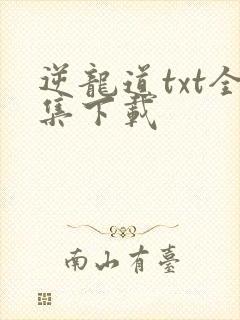 逆龍道txt全
集下載
南山有臺